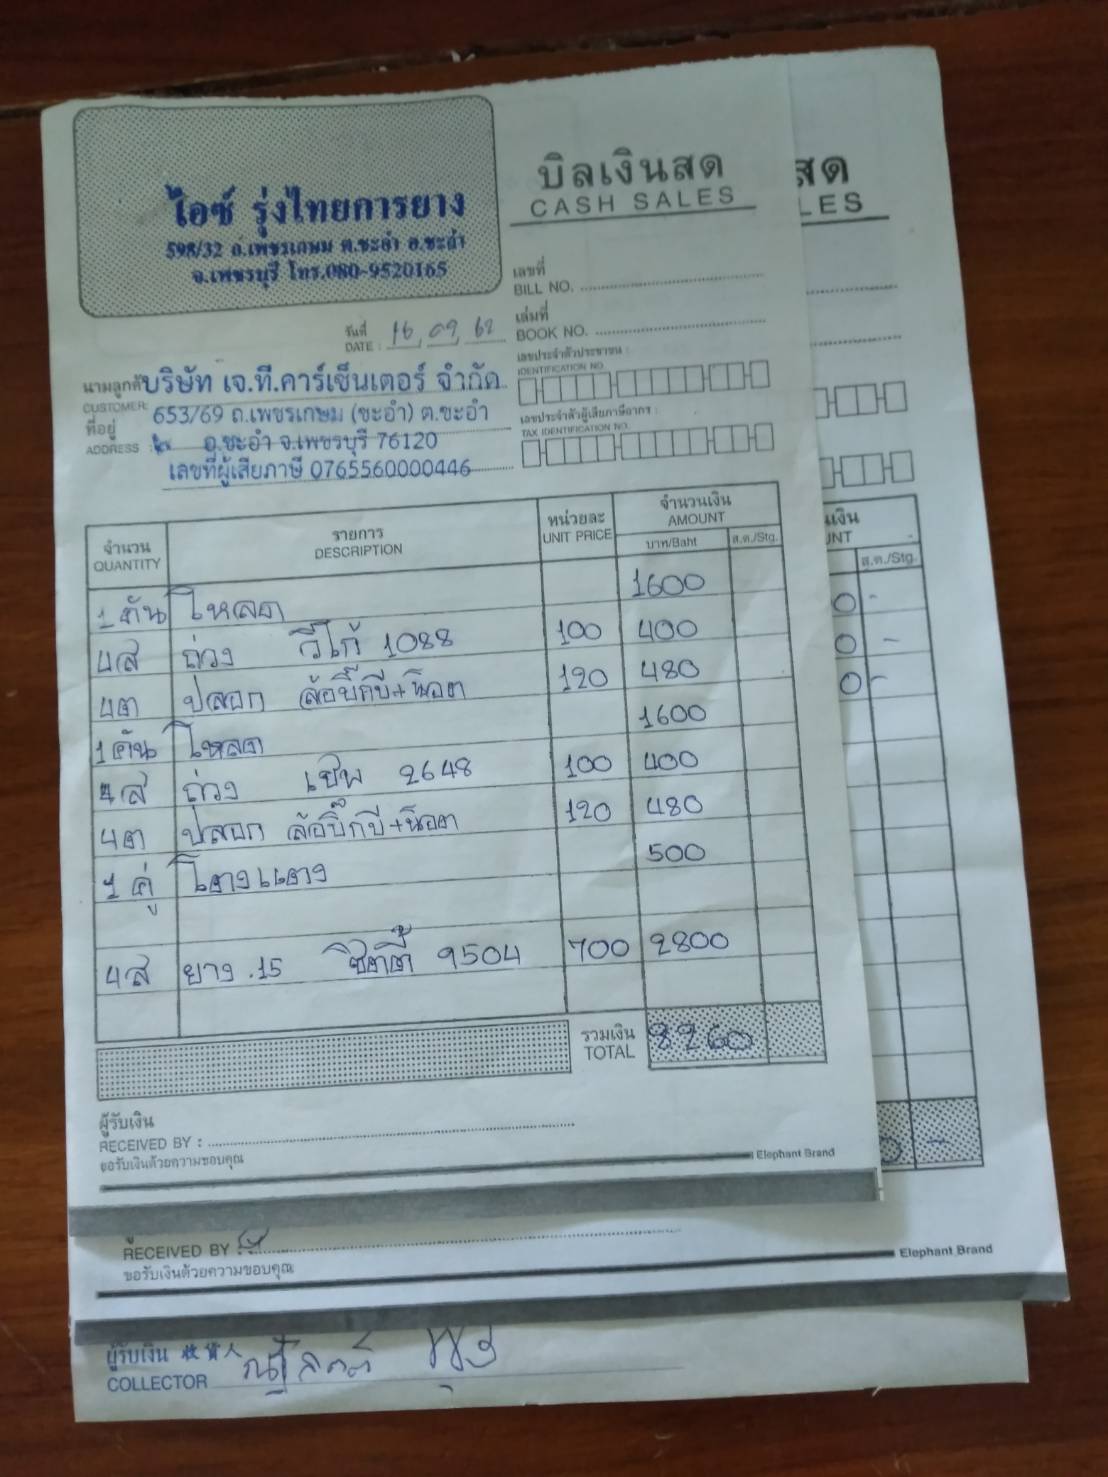 ไอซ์ รุ่งไทยการยาง
598/32 ถ.เพชรเกษม ต.ชะอำ อ.ชะอำ
จ.เพชรบุรี โทร.080-9520165
บิลเงินสด
CASH SALES
สด
LES
เลขที่
BILL NO.
เล่มที่
BOOK NO.
วันที่
DATE : 16, 09, 62
เลขประจำตัวประชาชน :
IDENTIFICATION NO.
นามลูกค้า บริษัท เจ.ที.คาร์เซ็นเตอร์ จำกัด
CUSTOMER:
653/69 ถ.เพชรเกษม (ชะอำ) ต.ชะอำ
ที่อยู่
ADDRESS : อ.ชะอำ จ.เพชรบุรี 76120
เลขที่ผู้เสียภาษี 0765560000446
เลขประจำตัวผู้เสียภาษีอากร :
TAX IDENTIFICATION NO.
จำนวน รายการ หน่วยละ จำนวนเงิน
QUANTITY DESCRIPTION UNIT PRICE AMOUNT
บาท/Baht ส.ต./Stg.
1 คัน โหลด 1600
4 ส ถ่วง วีโก้ 1088 100 400
4 ต ปลอก ล้อบิ๊กบี+น๊อต 120 480
1 คัน โหลด 1600
4 ส ถ่วง เชฟ 2648 100 400
4 ต ปลอก ล้อบิ๊กบี+น๊อต 120 480
1 คู่ โตงเตง 500
4 ส ยาง .15 ซิตตี้ 9504 700 2800
รวมเงิน
TOTAL 8260
ผู้รับเงิน
RECEIVED BY :
ขอรับเงินด้วยความขอบคุณ
Elephant Brand
เงิน
NT
ส.ต./Stg.
0 -
0 -
0 -
0. -
RECEIVED BY :
ขอรับเงินด้วยความขอบคุณ
Elephant Brand
ผู้รับเงิน 收貨人
COLLECTOR